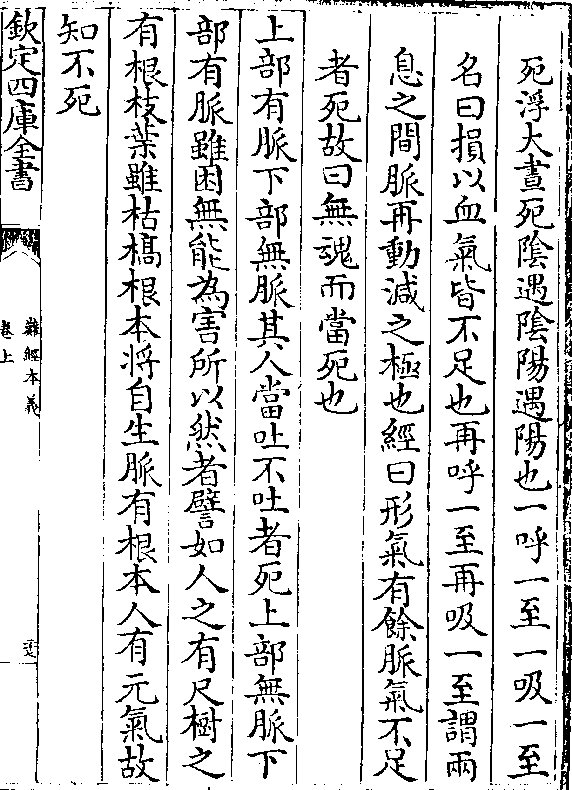 死浮大晝死陰遇陰陽遇陽也一呼一至一吸一至
名曰損以血氣皆不足也再呼一至再吸一至謂兩
息之間脈再動減之極也經曰形氣有餘脈氣不足
者死故曰無魂而當死也
上部有脈下部無脈其人當吐不吐者死上部無脈下
部有脈雖困無能為害所以然者譬如人之有尺樹之
有根枝葉雖枯槁根本將自生脈有根本人有元氣故
知不死
欽定四庫全書
難經本義
卷上